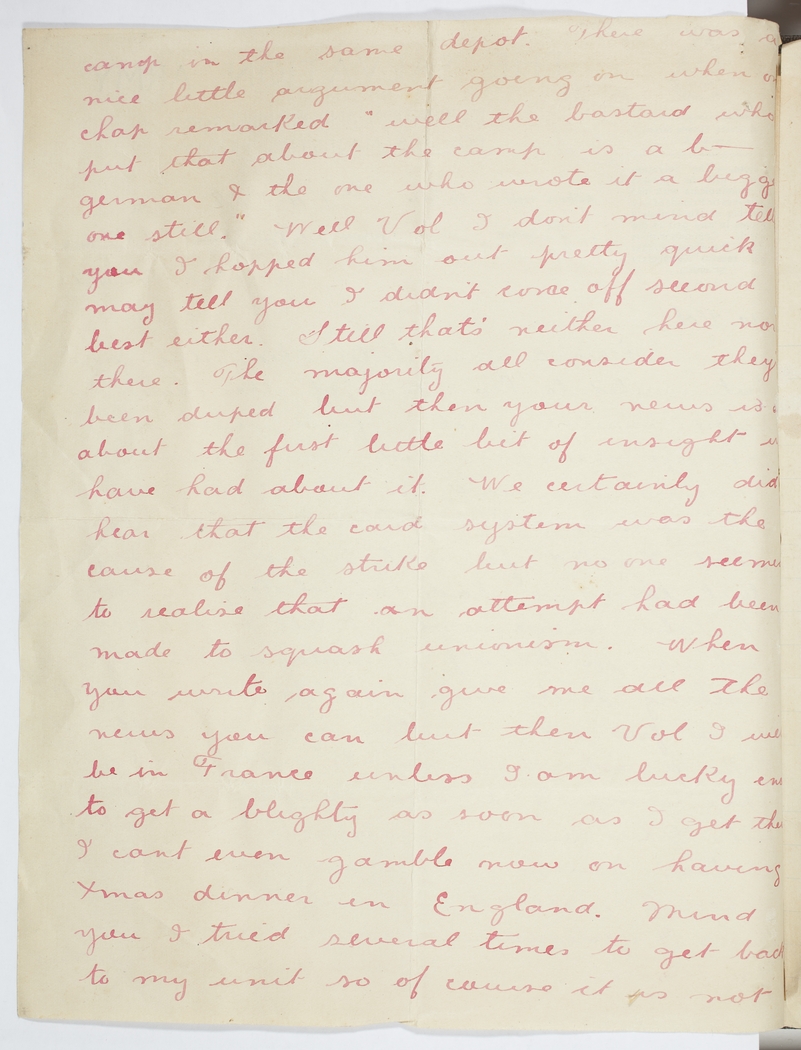 camp in the same depot. There was a
nice little argument going on when
chap remarked "well the bastard who
put that about the camp is a b—
german & the one who wrote it a bigg
one still." Well Vol I don't mind tell
you I hopped him out pretty quick
may tell you I didn't come off second
best either. Still that's neither here nor
there. The majority all consider they
been duped but then your news is
about the first little bit of insight
have had about it. We certainly did
hear that the card system was the
cause of the strike but no one seems
to realise that an attempt had been
made to squash unionism. When
you write again give me all the
news you can but then Vol I will
be in France unless I am lucky en
to get a blighty as soon as I get the
I cant even gamble now on having
Xmas dinner in England. Mind
you I tried several times to get back
to my unit so of course it is not